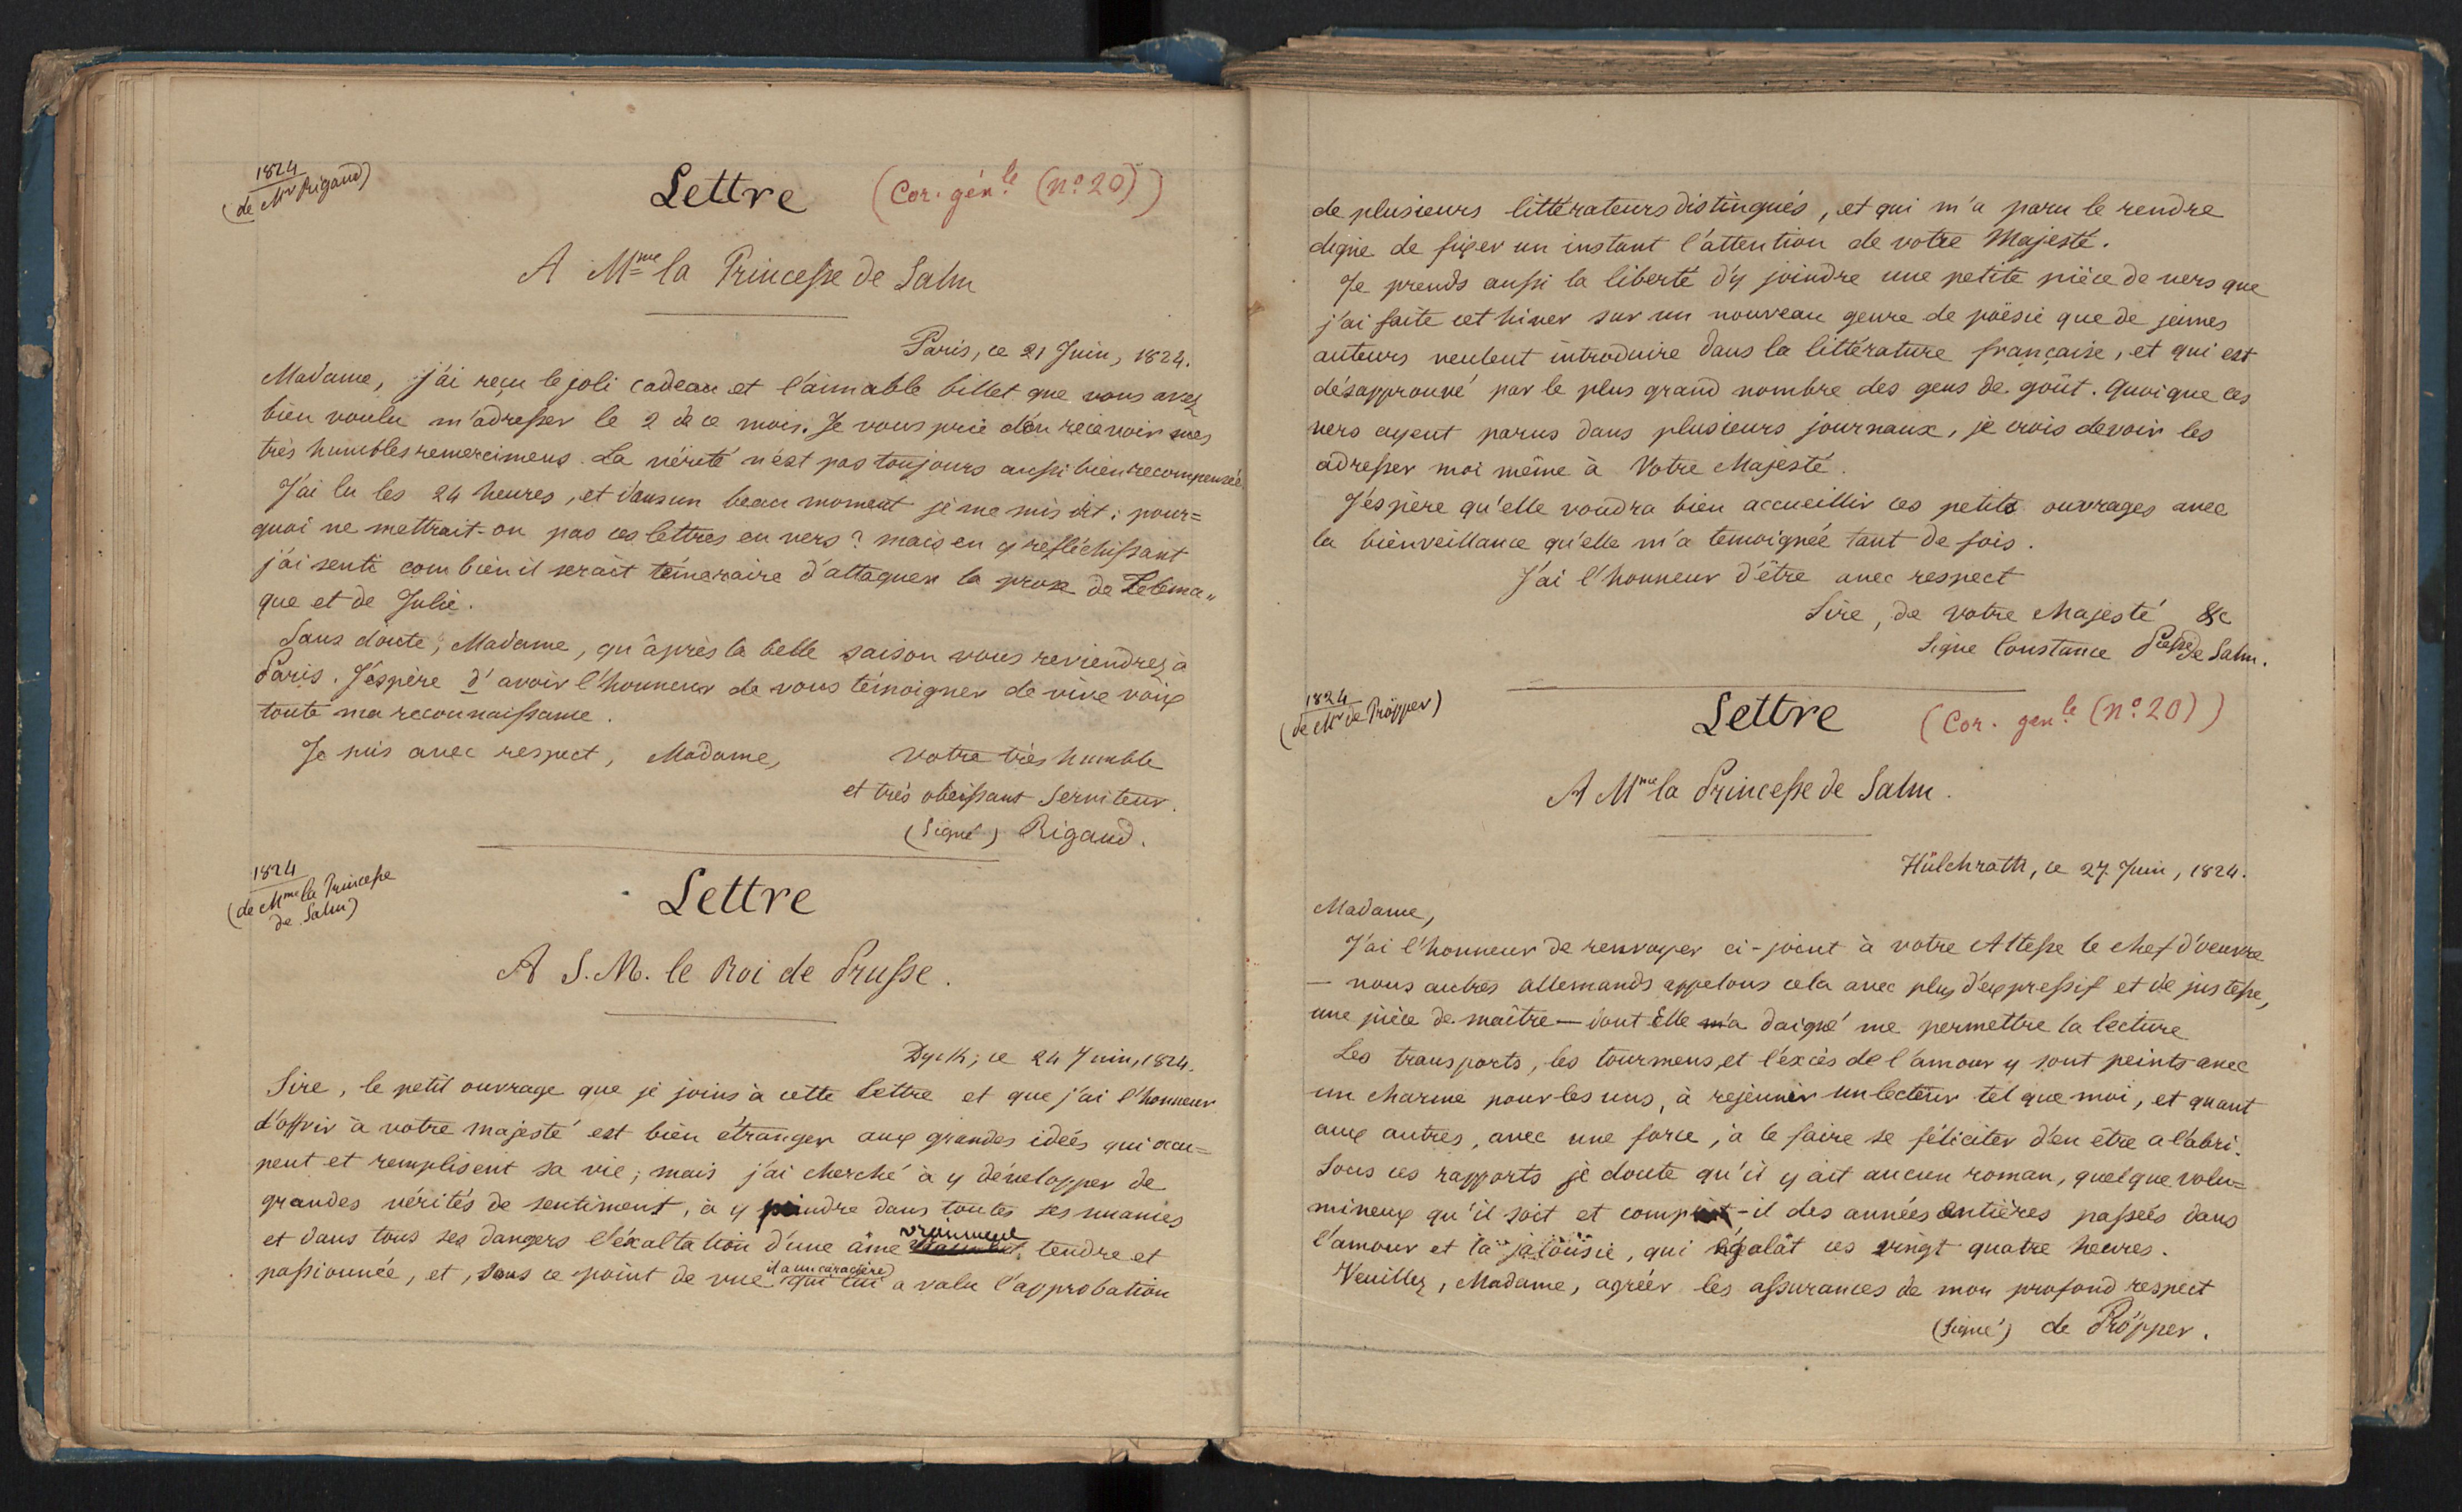 1824
(de Mr Rigaud)
Lettre (Cor. génle (no 20))
A Mme la Princesse de Salm
Paris, ce 21 Juin, 1824.
Madame, j'ai reçu le joli cadeau et l'aimable billet que vous avez
bien voulu m'adresser le 2 de ce mois. Je vous prie d'en recevoir mes
très humbles remercimens. La vérité n'est pas toujours aussi bien recompensée.
J'ai lu les 24 heures, et dans un beau moment je me mis dit: pour=
quoi ne mettrait-on pas ces lettres en vers? mais en y refléchissant
j'ai senti combien il serait téméraire d'attaquer la prose de Telema„
que et de Julie.
Sans doute, Madame, qu'après la belle saison vous reviendrez à
Paris. J'éspère d'avoir l'honneur de vous témoigner de vive voix
toute ma reconnaissance.
Je suis avec respect, Madame, votre très humble
et très obeissant Serviteur.
(Signé) Rigaud.
1824
(de Mme la Princesse
de Salm)
Lettre
A S. M. le Roi de Prusse.
Dyck, ce 24 Juin, 1824.
Sire, le petit ouvrage que je joins à cette lettre et que j'ai l'honneur
d'offrir à votre majesté est bien étranger aux grandes idées qui occu=
pent et remplisent sa vie; mais j'ai cherché à y développer de
grandes vérités de sentiment, à y peindre dans toutes ses nuances
et dans tous ses dangers l'éxaltation d'une âme vraiment tendre et
passionnée, et, sous ce point de vue il a un caractère qui lui a valu l'approbation
de plusieurs littérateurs distingués, et qui m'a paru le rendre
digne de fixer un instant l'attention de votre Majesté.
Je prends aussi la liberté d'y joindre une petite pièce de vers que
j'ai faite cet hiver sur un nouveau genre de poësie que de jeunes
auteurs veulent introduire dans la littérature française, et qui est
désapprouvé par le plus grand nombre des gens de goût. Quoique ces
vers ayent parus dans plusieurs journaux, je crois devoir les
adresser moi même à Votre Majesté.
J'éspère qu'elle voudra bien accueillir ces petits ouvrages avec
la bienveillance qu'elle m'a temoignée tant de fois.
J'ai l'honneur d'être avec respect
Sire, de votre Majesté &c
Signé Constance Pcesse de Salm.
1824
(de Mr de Pröpper)
Lettre (Cor. genle (no 20))
A Mme la Princesse de Salm.
Hülchrath, ce 27 Juin, 1824.
Madame,
J'ai l'honneur de renvoyer ci-joint à votre Altesse le chef d'oeuvre
— nous autres allemands appelons cela avec plus d'expressif et de justesse,
une pièce de maître — dont Elle m'a daigné me permettre la lecture
Les transports, les tourmens, et l'excès de l'amour y sont peints avec
un charme pour les uns, à rejeunir un lecteur tel que moi, et quant
aux autres, avec une force, à le faire se féliciter d'en être a l'abri.
Sous ces rapports je doute qu'il y ait aucun roman, quelque volu=
mineux qu'il soit et comptât-il des années entières passées dans
l'amour et la jalousie, qui égalât ces vingt quatre heures.
Veuillez, Madame, agréer les assurances de mon profond respect
(signé) de Pröpper.